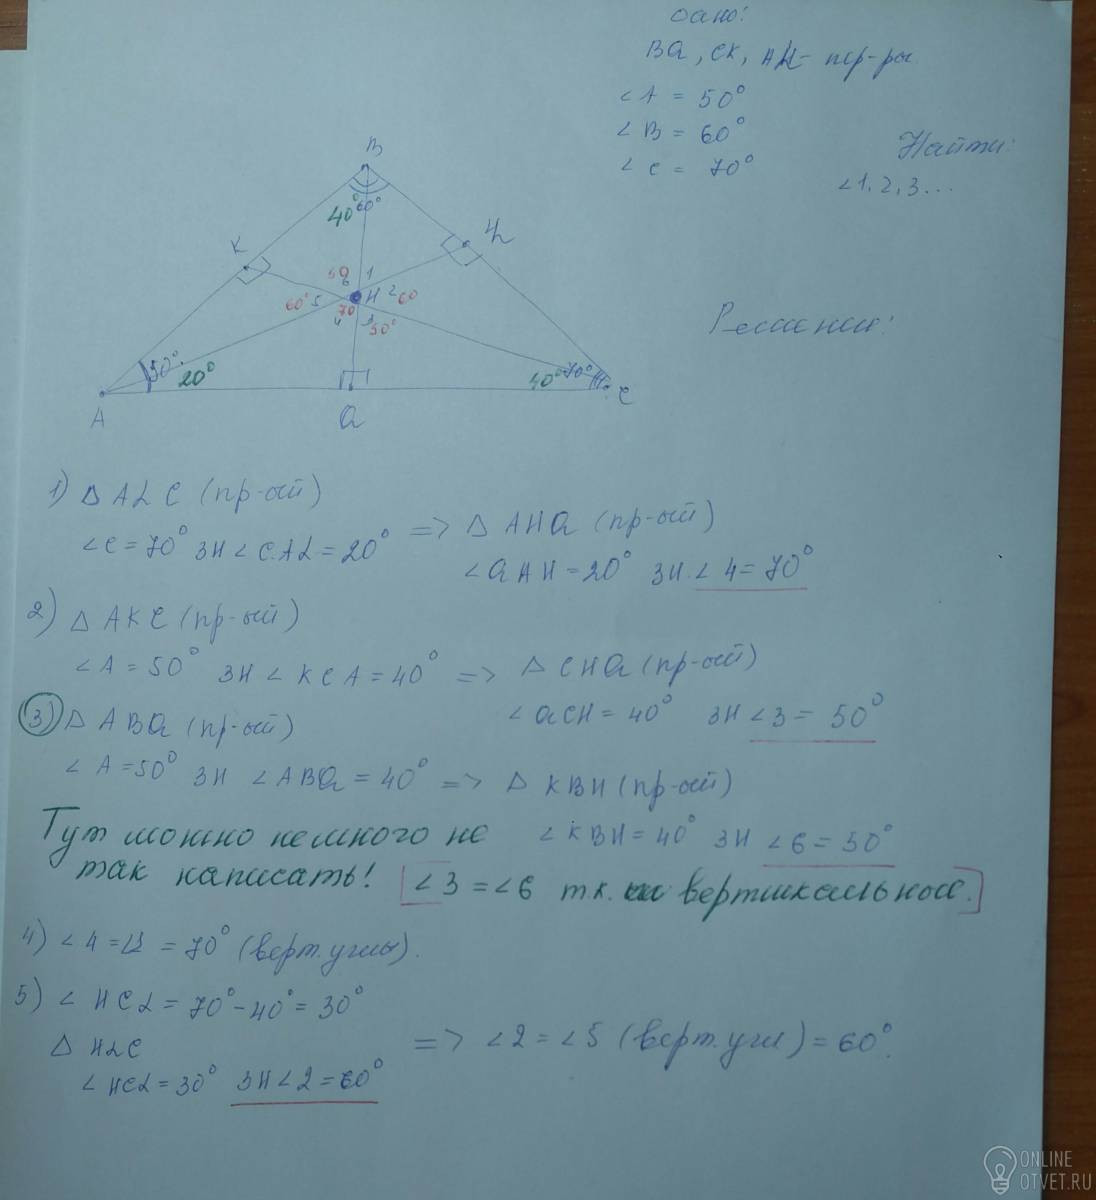 Дано:
BQ, CK, AL - пер-ры.
∠A = 50°
∠B = 60°
∠C = 70°
Найти:
∠1, 2, 3...
B
40° 60°
K
L
50
6
1
60° 5
H
2 60
70
4
3 50°
50°
20°
40° 70°
A
Q
C
Решение:
1) △ ALC (пр-ый)
∠C = 70° зн ∠CAL = 20° => △ AHQ (пр-ый)
∠QAH = 20° зн. ∠4 = 70°
2) △ AKC (пр-ый)
∠A = 50° зн ∠KCA = 40° => △ CHQ (пр-ый)
∠QCH = 40° зн ∠3 = 50°
3) △ ABQ (пр-ый)
∠A = 50° зн ∠ABQ = 40° => △ KBH (пр-ый)
∠KBH = 40° зн ∠6 = 50°
Тут можно немного не
так написать! [∠3 = ∠6 т.к. вертикальное.]
4) ∠4 = ∠1 = 70° (верт. углы).
5) ∠HCL = 70° - 40° = 30°
△ HLC => ∠2 = ∠5 (верт. угл) = 60°.
∠HCL = 30° зн ∠2 = 60°
ONLINE
OTVET.RU